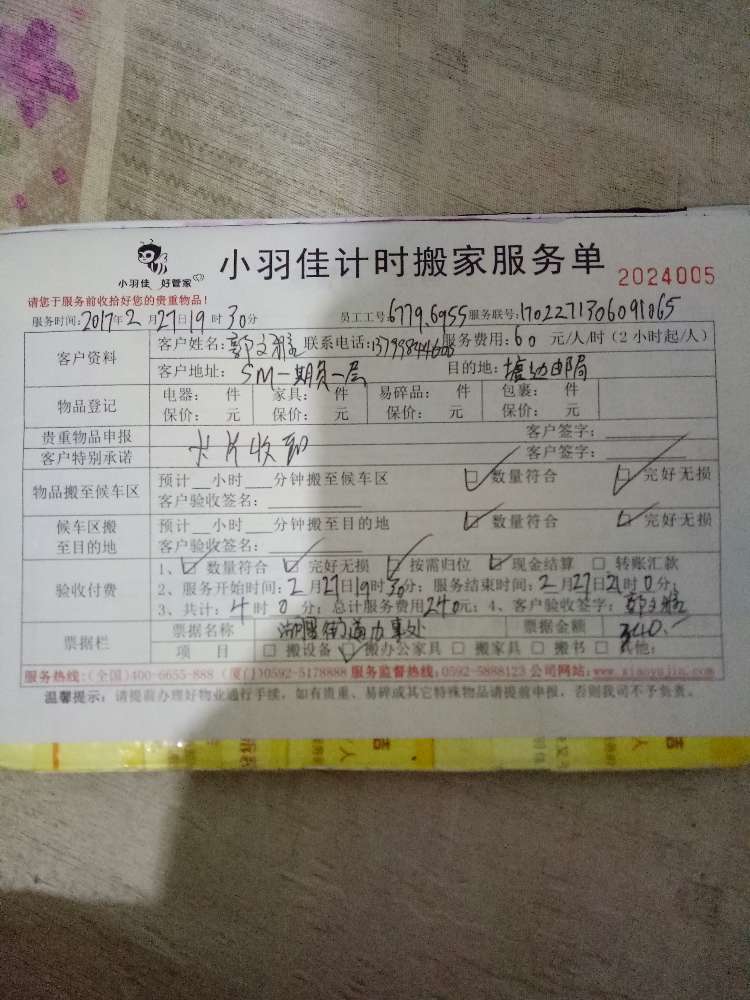 小羽佳 好管家
小羽佳计时搬家服务单 2024005
请您于服务前收拾好您的贵重物品!
服务时间:2017年2月27日19时30分 员工工号6779.6955服务联号:1702271306091065
客户资料
客户姓名:郭文 联系电话: 服务费用:60 元/人/时(2小时起/人)
客户地址: SM一期负一层 目的地:塘边邮局
物品登记
电器: 件 家具: 件 易碎品: 件 包裹: 件
保价: 元 保价: 元 保价: 元 保价: 元
贵重物品申报 客户签字:
卡片收到
客户特别承诺 客户签字:
物品搬至候车区
预计__小时__分钟搬至候车区 数量符合 完好无损
客户验收签名:
候车区搬至目的地
预计__小时__分钟搬至目的地 数量符合 完好无损
客户验收签名:
验收付费
1、数量符合 完好无损 按需归位 现金结算 转账汇款
2、服务开始时间:2月27日19时30分;服务结束时间:2月27日21时0分;
3、共计:4时0分;总计服务费用240元;4、客户验收签字:郭文
票据栏
票据名称 街道办事处 票据金额 240.-
项 目 搬设备 搬办公家具 搬家具 搬书 其他:
服务热线:(全国)400-6655-888 (厦门)0592-5178888 服务监督热线:0592-5888123 公司网站:www.xiaoyujia.com
温馨提示:请提前办理好物业通行手续,如有贵重、易碎或其它特殊物品请提前申报,否则我司不予负责。